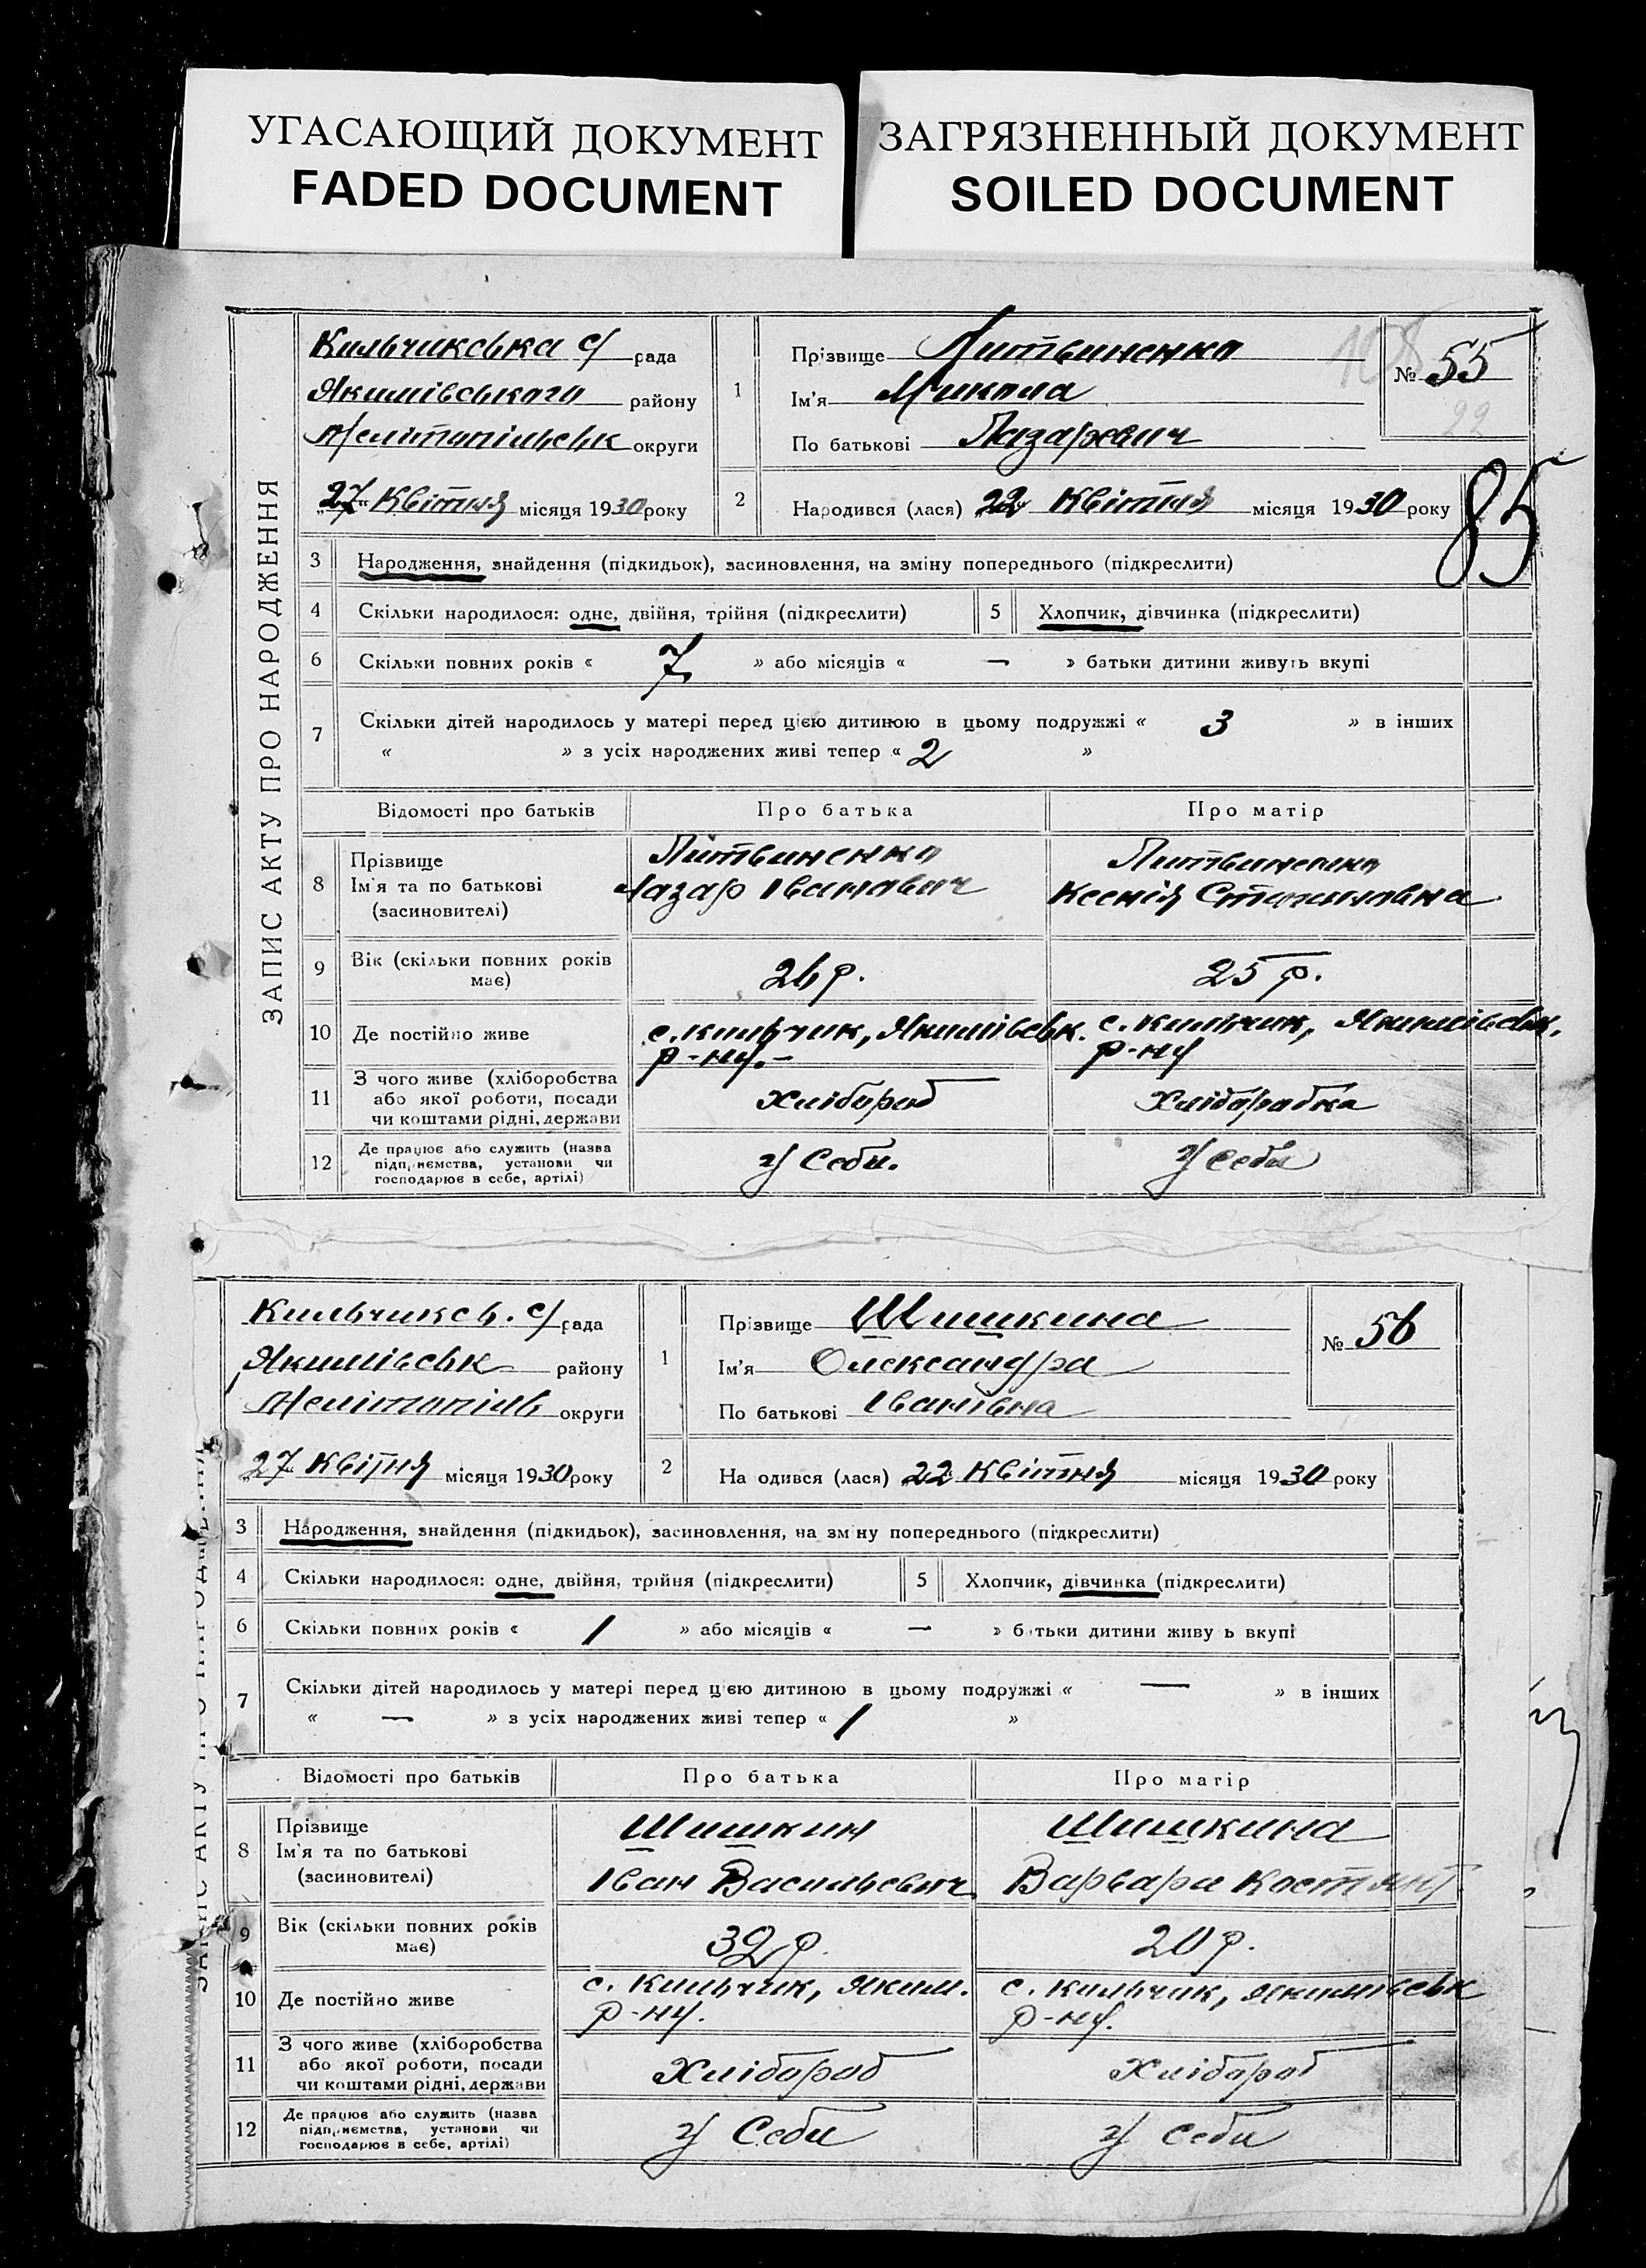 УГАСАЮЩИЙ ДОКУМЕНТ
FADED DOCUMENT
ЗАГРЯЗНЕННЫЙ ДОКУМЕНТ
SOILED DOCUMENT
ЗАПИС АКТУ ПРО НАРОДЖЕННЯ
Кильчикська с/ рада
Якимівського району
Мелітопільськ округи
27 Квітня місяця 1930 року
1
Прізвище Литвиненко
Ім'я Микола
По батькові Лазаревич
№ 55
22
2
Народився (лася) 22 Квітня місяця 1930 року
85
3 Народження, знайдення (підкидьок), засиновлення, на зміну попереднього (підкреслити)
4 Скільки народилося: одне, двійня, трійня (підкреслити) 5 Хлопчик, дівчинка (підкреслити)
6 Скільки повних років « 7 » або місяців « — » батьки дитини живуть вкупі
7 Скільки дітей народилось у матері перед цією дитиною в цьому подружжі « 3 » в інших
« » з усіх народжених живі тепер « 2 »
Відомості про батьків Про батька Про матір
8 Прізвище
Ім'я та по батькові
(засиновителі)
Литвиненко
Лазар Іванович
Литвиненко
Ксенія
9 Вік (скільки повних років
має)
26 р. 25 р.
10 Де постійно живе
с. Кильчик, Якимівськ.
р-ну. –
с. Кильчик, Якимівськ.
р-ну
11 З чого живе (хліборобства
або якої роботи, посади
чи коштами рідні, держави
Хлібороб Хліборобка
12 Де працює або служить (назва
підприємства, установи чи
господарює в себе, артілі)
у Себи. у Себи
ЗАПИС АКТУ ПРО НАРОДЖЕННЯ
Кильчиксь. с/ рада
Якимівськ району
Мелітопіль округи
27 Квітня місяця 1930 року
1
Прізвище Шишкина
Ім'я Олександра
По батькові Іванівна
№ 56
2
На одився (лася) 22 Квітня місяця 1930 року
3 Народження, знайдення (підкидьок), засиновлення, на зм ну попереднього (підкреслити)
4 Скільки народилося: одне, двійня, трійня (підкреслити) 5 Хлопчик, дівчинка (підкреслити)
6 Скільки повних років « 1 » або місяців « — » б тьки дитини живу ь вкупі
7 Скільки дітей народилось у матері перед цією дитиною в цьому подружжі « — » в інших
« — » з усіх народжених живі тепер « 1 »
Відомості про батьків Про батька Про матір
8 Прізвище
Ім'я та по батькові
(засиновителі)
Шишкин
Іван Васильевич
Шишкина
Варвара Костянт
9 Вік (скільки повних років
має)
32 р. 20 р.
10 Де постійно живе
с. Кильчик, Яким.
р-ну.
с. Кильчик, Якимівськ
р-ну.
11 З чого живе (хліборобства
або якої роботи, посади
чи коштами рідні, держави
Хлібороб Хлібороб
12 Де працює або служить (назва
підприємства, установи чи
господарює в себе, артілі)
у Себи у Себи